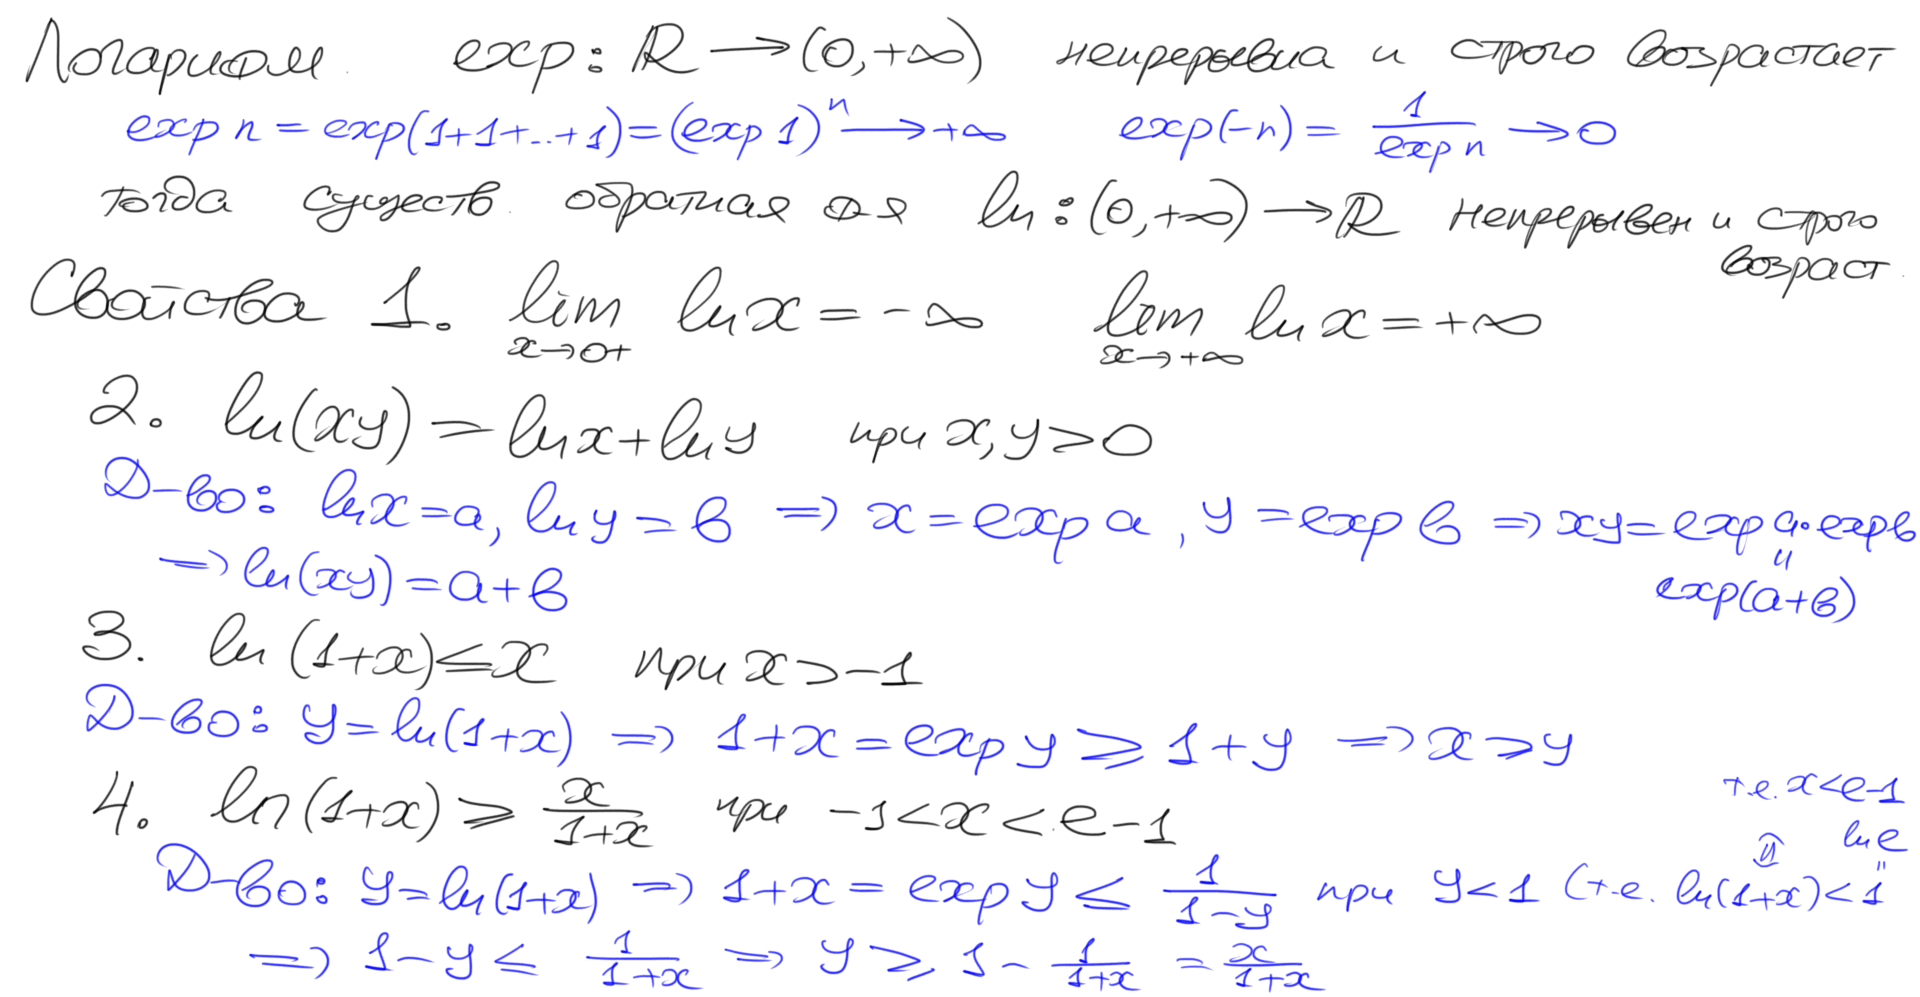 Логарифм. exp: ℝ → (0,+∞) непрерывна и строго возрастает
exp n = exp(1+1+..+1) = (exp 1)ⁿ → +∞ exp(-n) = 1/(exp n) → 0
тогда существ. обратная ф-я ln: (0,+∞) → ℝ непрерывен и строго возраст.
Свойства 1. lim_{x→0+} ln x = -∞ lim_{x→+∞} ln x = +∞
2. ln(xy) = ln x + ln y при x, y > 0
Д-во: ln x = a, ln y = b ⇒ x = exp a, y = exp b ⇒ xy = exp a · exp b
"
⇒ ln(xy) = a+b exp(a+b)
3. ln(1+x) ≤ x при x > -1
Д-во: y = ln(1+x) ⇒ 1+x = exp y ≥ 1+y ⇒ x ≥ y
т.е. x < e-1
4. ln(1+x) ≥ x/(1+x) при -1 < x < e-1
⇑ ln e
"
Д-во: y = ln(1+x) ⇒ 1+x = exp y ≤ 1/(1-y) при y < 1 (т.е. ln(1+x) < 1
⇒ 1-y ≤ 1/(1+x) ⇒ y ≥ 1 - 1/(1+x) = x/(1+x)